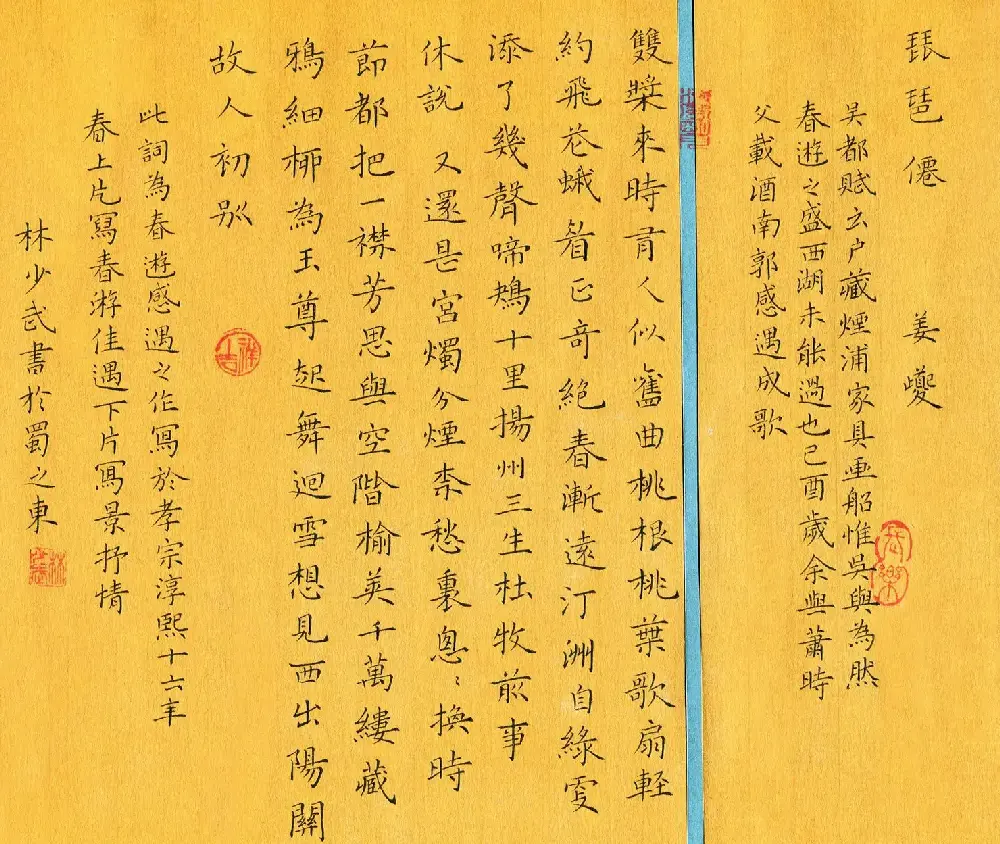 琵琶僊 姜夔
吳都賦云户藏煙浦家具畫船惟吳興為然
春遊之盛西湖未能過也己酉歲余與蕭時
父載酒南郭感遇成歌
雙槳來時有人似舊曲桃根桃葉歌扇輕
約飛花蛾眉正奇絕春漸遠汀洲自綠更
添了幾聲啼鴂十里揚州三生杜牧前事
休說 又還是宮燭分煙奈愁裏悤〻換時
節都把一襟芳思與空階榆莢千萬縷藏
鴉細柳為玉尊起舞迴雪想見西出陽關
故人初別
此詞為春遊感遇之作寫於孝宗淳熙十六年
春上片寫春游佳遇下片寫景抒情
林少武書於蜀之東